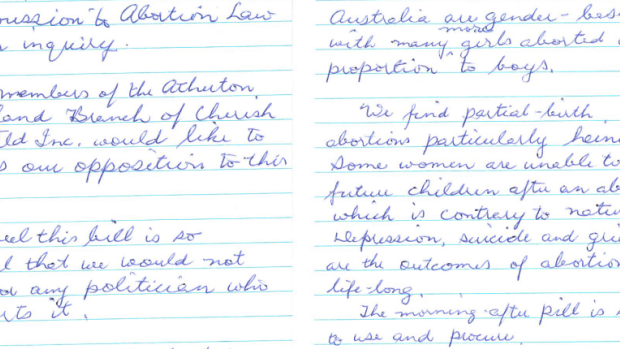 mission to Abortion Law
inquiry.
members of the Atherton
land Branch of Cherish
ld Inc. would like to
s our opposition to this
eel this bill is so
l that we would not
or any politician who
rts it.
Australia are gender-bas
with many more girls aborted
proportion to boys.
We find partial-birth
abortions particularly hein
Some women are unable to
future children after an ab
which is contrary to natu
Depression, suicide and gri
are the outcomes of abortion
life-long.
The morning-after pill is
to use and procure.